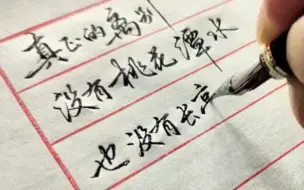 真正的离别
没有桃花潭水
也没有长亭